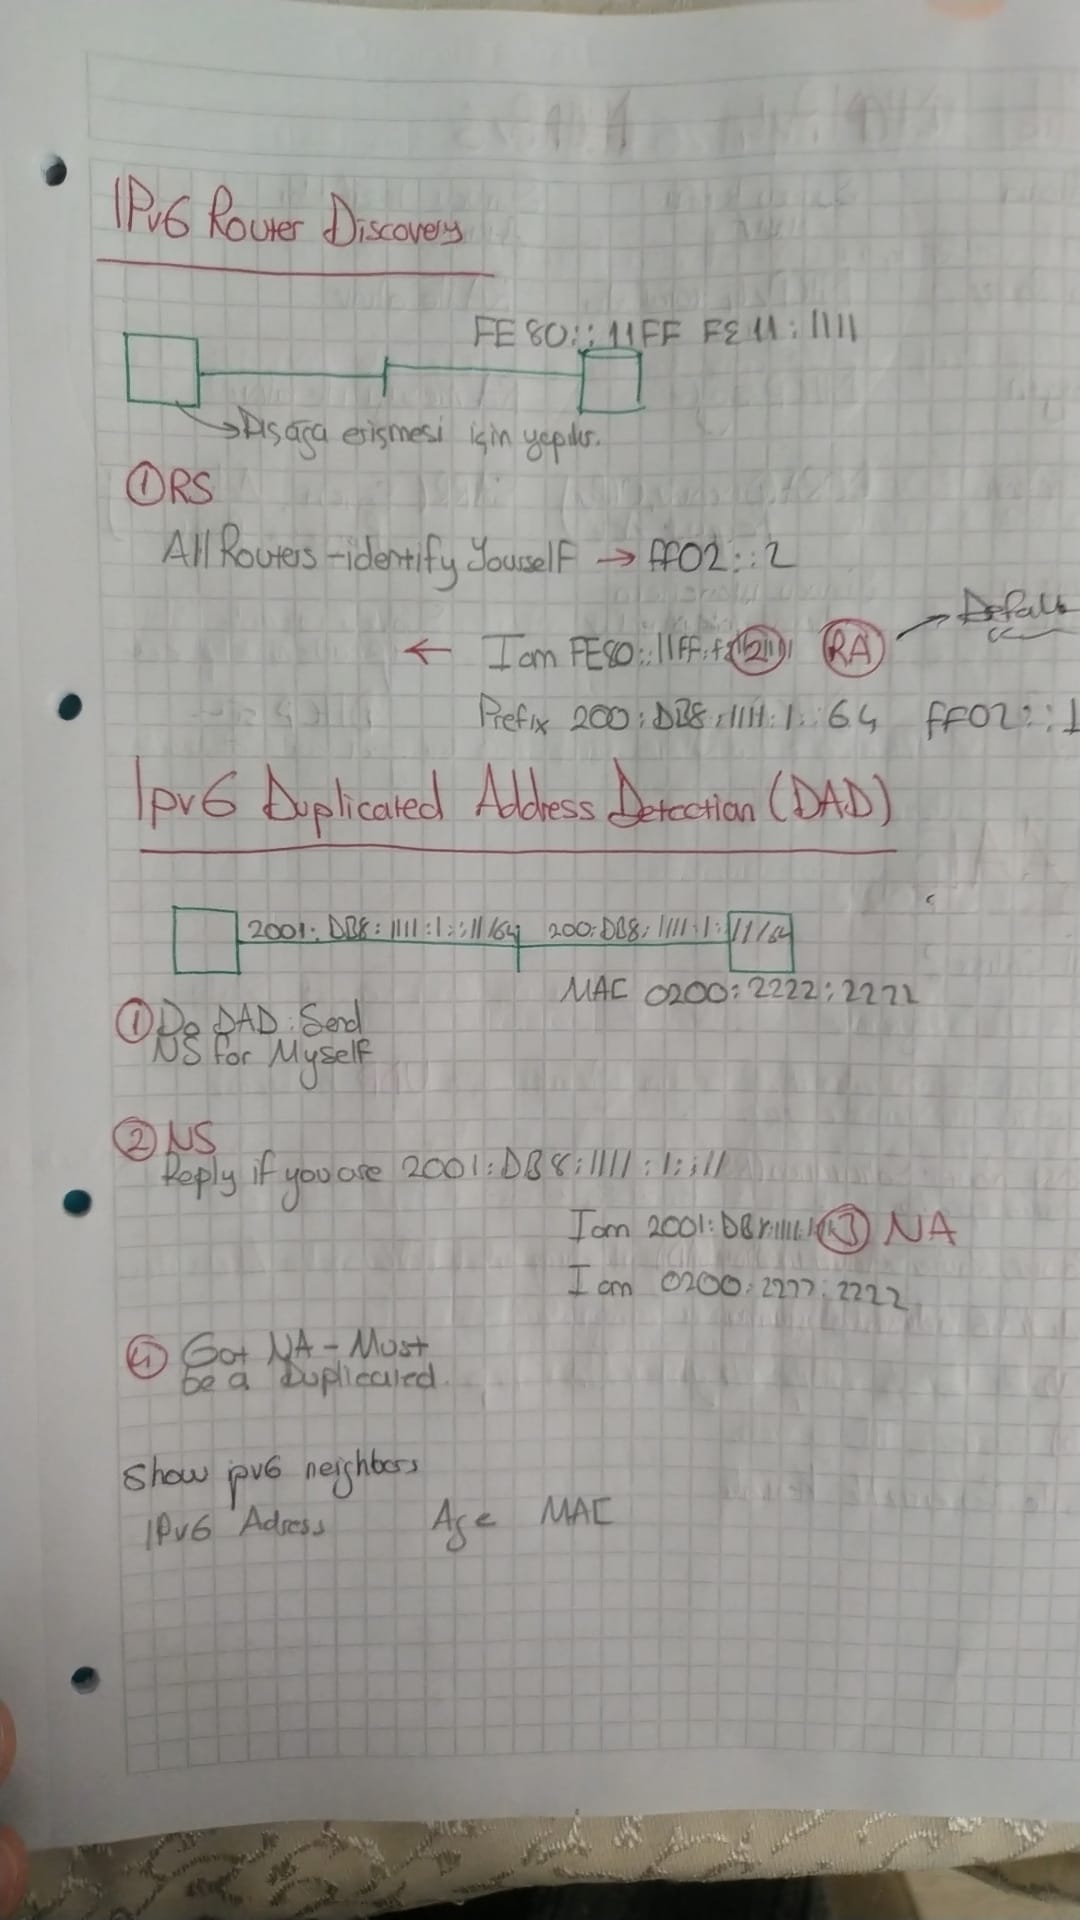 IPv6 Router Discovery
FE80::11FF FE11:1111
→Dışarıya erişmesi için yapılır.
① RS
All Routers -identify Yourself → ff02::2
Defaul
← I am FE80::11FF:f ② RA
Prefix 200:DB8:1111:1::64 ff02::1
Ipv6 Duplicated Address Detection (DAD)
2001:DB8:1111:1::11/64 200:DB8:1111:1:11/64
MAC 0200:2222:2222
① Do DAD:Send
NS for Myself
② NS
Reply if you are 2001:DB8:1111:1::11
I am 2001:DB8:1111:1 ③ NA
I am 0200:2222:2222
④ Got NA - Must
be a Duplicated.
Show ipv6 neighbors
IPv6 Adress Age MAC